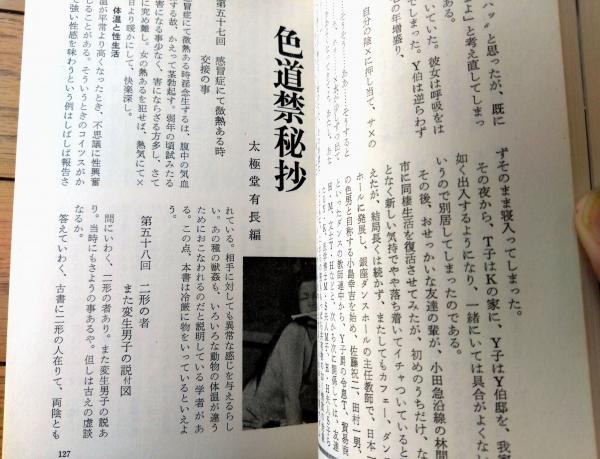 ハッ』と思ったが、既に
よ』と考え直してしまっ
ある。
いていた。彼女は呼吸をは
でしまった。Y伯は逆らわず
の年増盛り、
自分の陰×に押し当て、サメの
ずそのまま寝入ってしまった。
その夜から、T子はKの家に、Y子はY伯邸を、我家
如く出入するようになり、一緒にいては具合がよくない
いうので別居してしまったのである。
その後、おせっかいな友達の輩が、小田急沿線の林間
市に同棲生活を復活させてみたが、初めのうちだけ、な
となく新しい気持でやや落ち着いてイチャついていると
えたが、結局長くは続かず、またしてもカフェー、ダンス
ホールに発展し、銀座ダンスホールの主任教師で、日本一
の色男と自称する小島幸吉を始め、佐藤祝二、田村一男、
といったダンスの教師連中から、Y子男の令息T、貿易商
色道禁秘抄
太極堂有長編
第五十七回 感冒症にて微熱ある時
交接の事
感冒症にて微熱ある時淫念生ずるは、腹中の気血
する故、かえって茎勃起す。弱年の頃試みたる
に害になる事少なく、害にならざる方多し、さて
に究め難し。女の熱あるを犯せば、熱気にて×
日より暖かにして、快楽深し。
体温と性生活
温が平常より高くなったとき、不思議に性興奮
ることがある。そういうときのコイツスがか
て強い性感を味わうという例はしばしば報告さ
れている。相手に対しても異常な感じを与えるらし
い。あの種の獣姦も、いろいろな動物の体温が違う
ためにおこなわれるのだと説明している学者があ
る。この点、本書は冷厳に物をいっているといえよ
う。
第五十八回 二形の者
また変生男子の説付図
問にいわく、二形の者あり。また変生男子の説あ
り。当時にもさようの事あるや。但しは古えの虚談
なるか。
答えていわく、古書に二形の人在りて、両陰とも
127